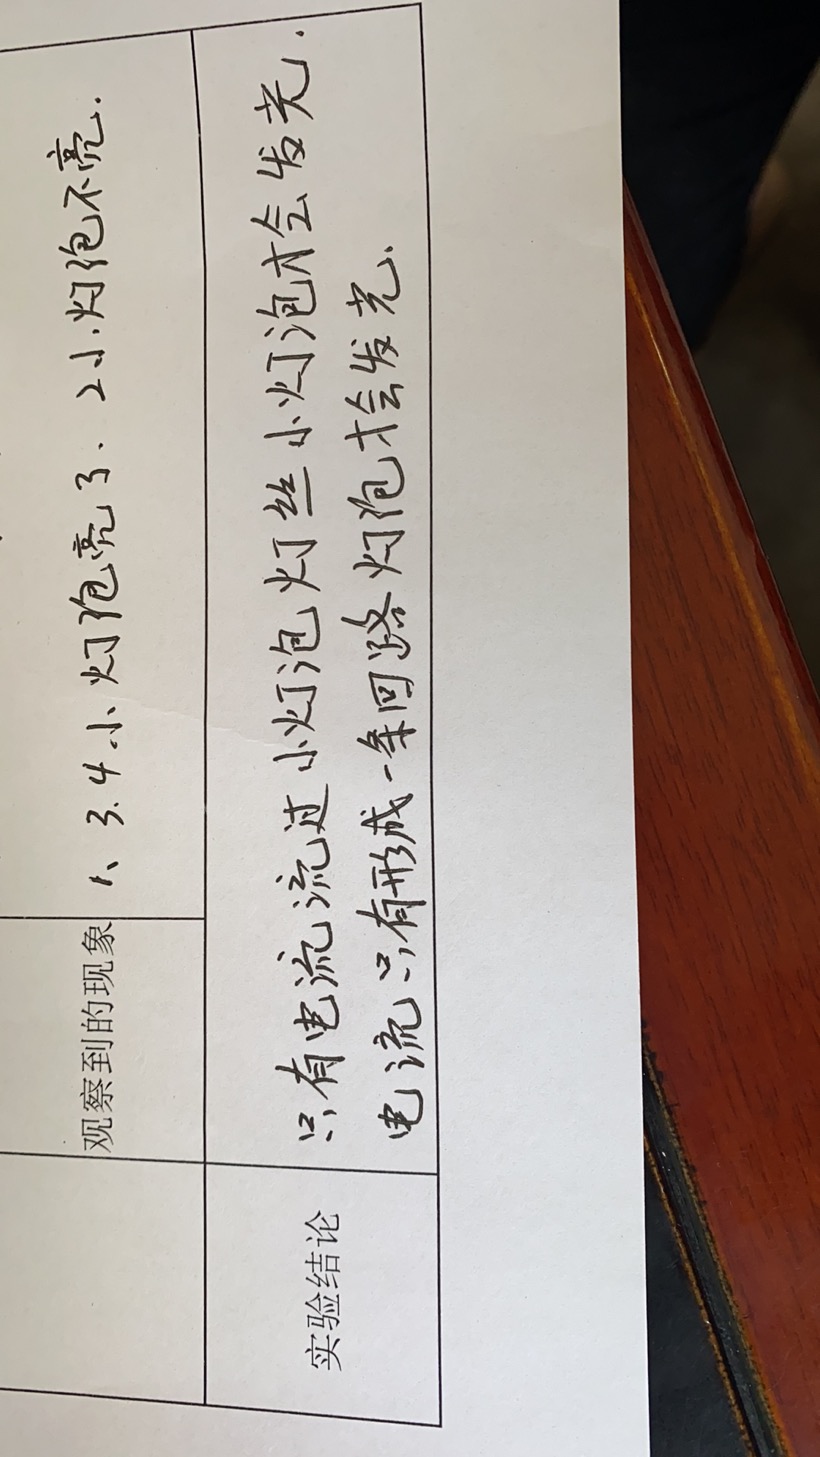 观察到的现象
1、3.4小灯泡亮了、2小灯泡不亮.
实验结论
只有电流流过小灯泡灯丝小灯泡才会发光.
电流只有形成一条回路灯泡才会发光.